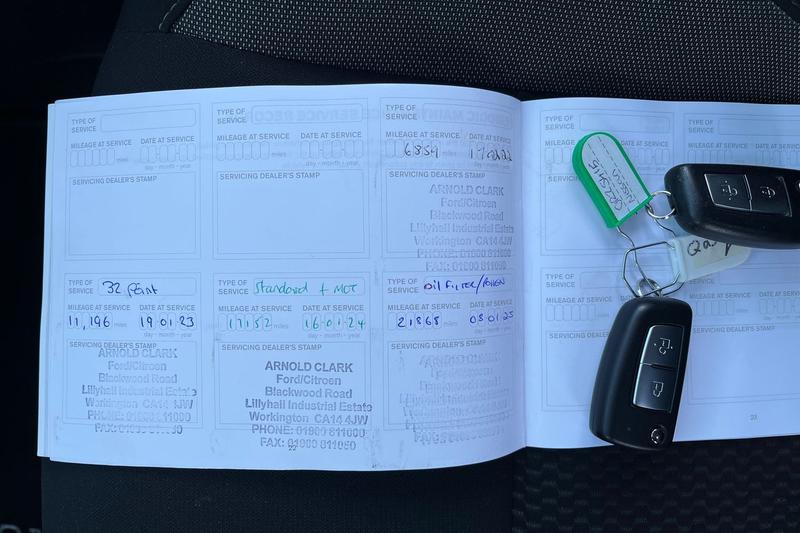 TYPE OF SERVICE
MILEAGE AT SERVICE DATE AT SERVICE
miles
day - month - year
SERVICING DEALER'S STAMP
TYPE OF SERVICE
MILEAGE AT SERVICE DATE AT SERVICE
miles
day - month - year
SERVICING DEALER'S STAMP
TYPE OF SERVICE
MILEAGE AT SERVICE DATE AT SERVICE
6854
day - month - year
SERVICING DEALER'S STAMP
ARNOLD CLARK
Ford/Citroen
Blackwood Road
Lillyhall Industrial Estate
Workington CA14 4JW
PHONE: 01900 811000
FAX: 01900 811050
TYPE OF SERVICE 32 Point
MILEAGE AT SERVICE DATE AT SERVICE
11,196 miles 19 01 23
day - month - year
SERVICING DEALER'S STAMP
ARNOLD CLARK
Ford/Citroen
Blackwood Road
Lillyhall Industrial Estate
Workington CA14 4JW
PHONE: 01900 811000
FAX: 01900 811050
TYPE OF SERVICE Standard + MOT
MILEAGE AT SERVICE DATE AT SERVICE
17152 miles 16 01 24
day - month - year
SERVICING DEALER'S STAMP
ARNOLD CLARK
Ford/Citroen
Blackwood Road
Lillyhall Industrial Estate
Workington CA14 4JW
PHONE: 01900 811000
FAX: 01900 811050
22
TYPE OF SERVICE Oil FILTER/POLLEN
MILEAGE AT SERVICE DATE AT SERVICE
21868 miles 08 01 25
day - month - year
SERVICING DEALER'S STAMP
ARNOLD CLARK
Ford/Citroen
Blackwood Road
Lillyhall Industrial Estate
TYPE OF SERVICE
MILEAGE AT SERVICE
SERVICING DEALER'S
TYPE OF SERVICE
MILEAGE AT SERVICE DATE AT SERVICE
NISSAN
TYPE OF SERVICE
MILEAGE AT
SERVICING
DATE AT SERVICE
day - month - year
STAMP
23